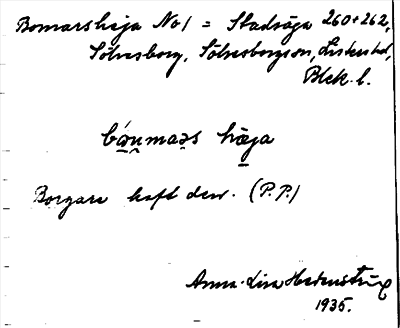 Bomarshaja No 1 = Stadsäga 260+262,
Sölvesborg, Sölvesborgson, Listers hd,
Blek. l.
hæja
Borgare haft den. (P.P.)
Anna-Lisa Hedenström
1935.